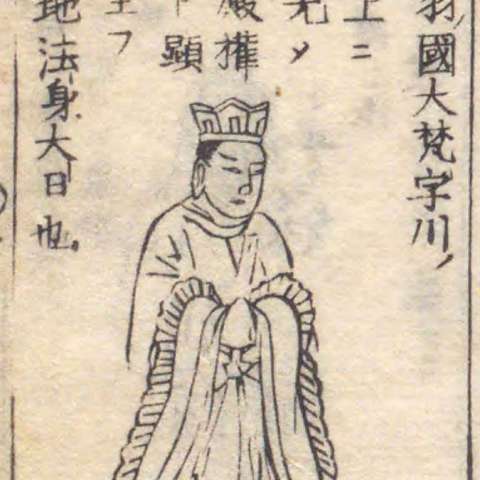 羽國大梵字川ノ
上ニ
メ
殿權
ト顯
フ
地法身大日也。